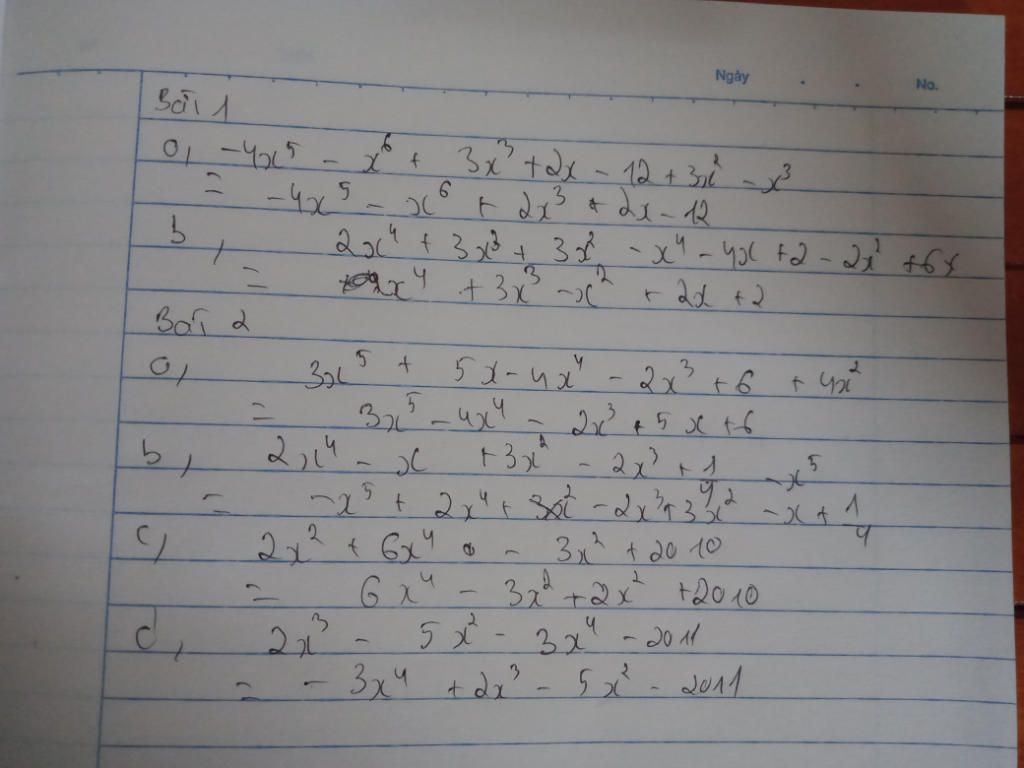 Ngày . . No.
Bài 1
a, -4x⁵ - x⁶ + 3x³ + 2x - 12 + 3x² - x³
= -4x⁵ - x⁶ + 2x³ + 2x - 12
b, 2x⁴ + 3x³ + 3x² - x⁴ - 4x + 2 - 2x² + 6x
= 2x⁴ + 3x³ - x² + 2x + 2
Bài 2
a, 3x⁵ + 5x - 4x⁴ - 2x³ + 6 + 4x²
= 3x⁵ - 4x⁴ - 2x³ + 5x + 6
b, 2x⁴ - x + 3x² - 2x³ + 1/4 - x⁵
= -x⁵ + 2x⁴ + - 2x³ + 3x² - x + 1/4
c, 2x² + 6x⁴ - 3x² + 2010
= 6x⁴ - 3x² + 2x² + 2010
d, 2x³ - 5x² - 3x⁴ - 2011
= - 3x⁴ + 2x³ - 5x² - 2011